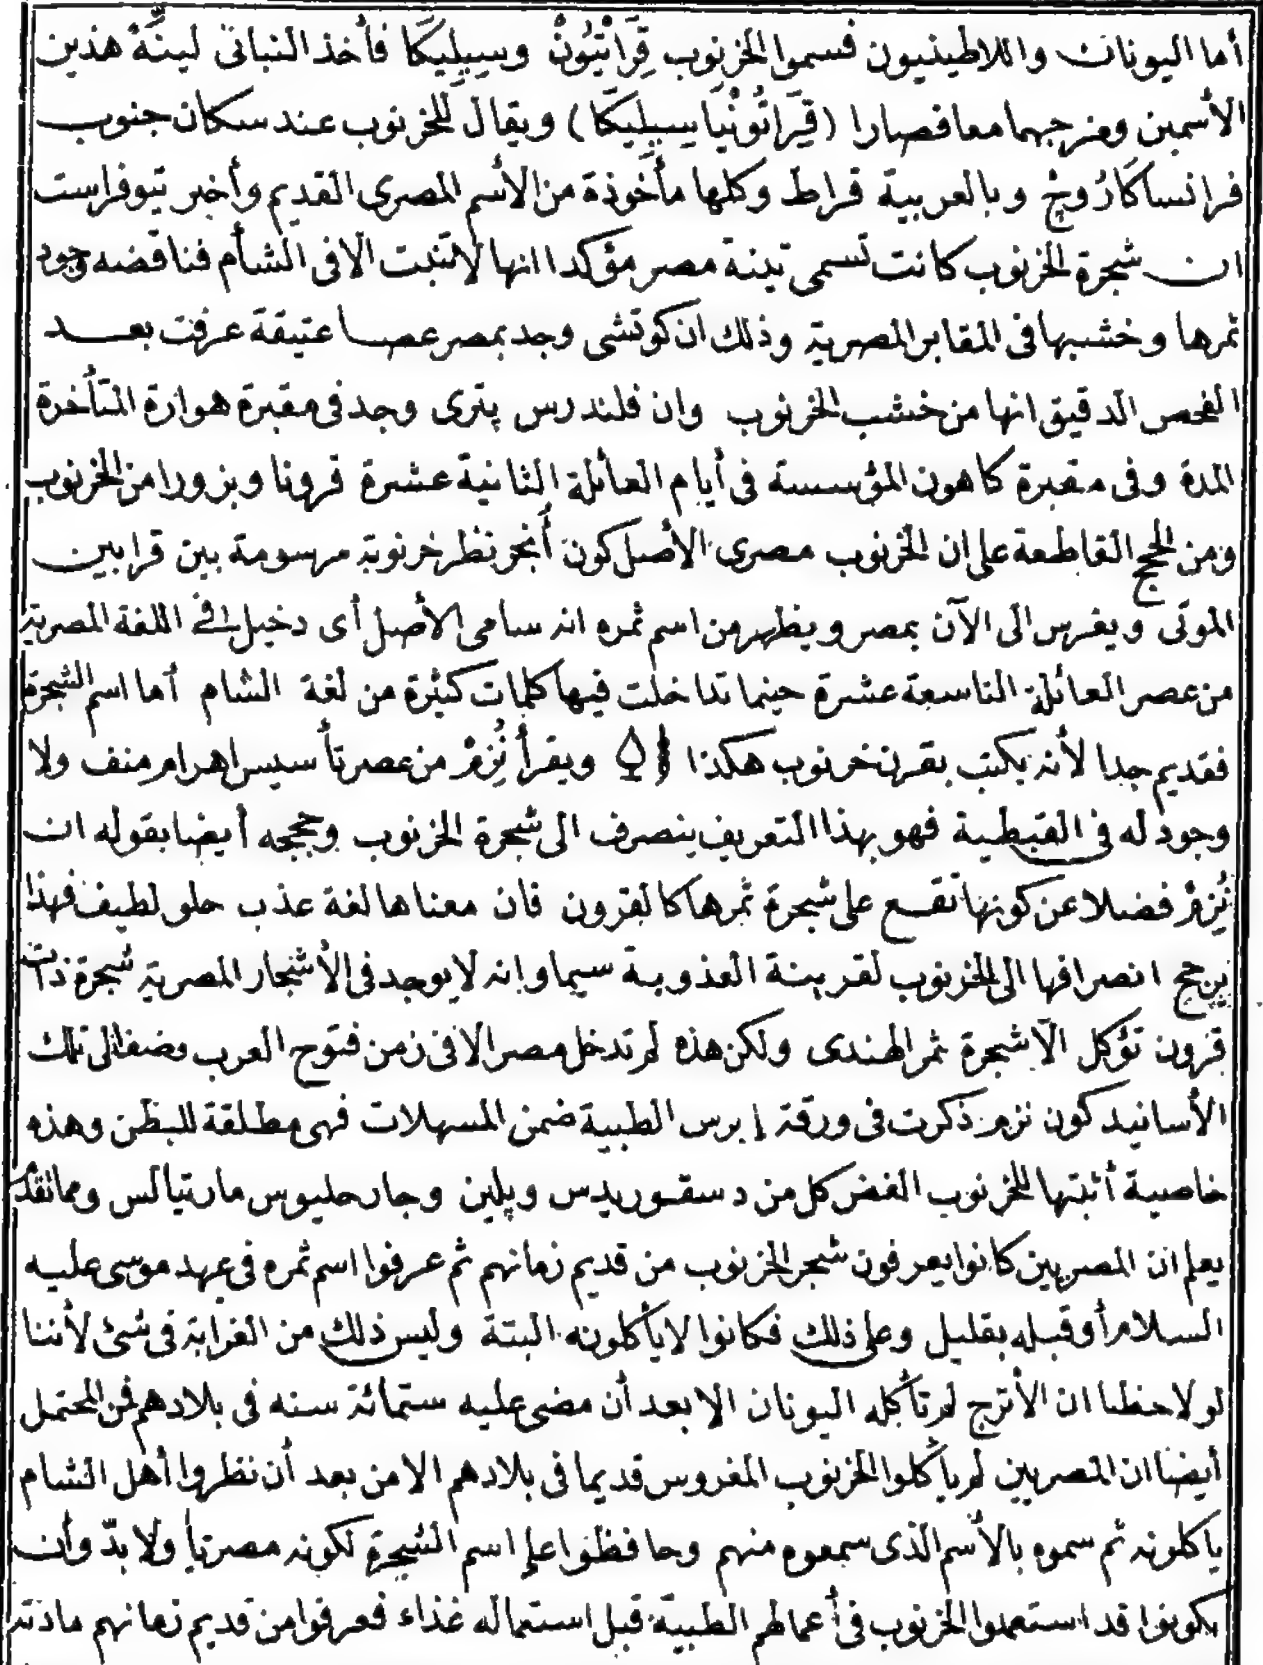 أما اليونان واللاطينيون فسموا الخرنوب قِرَاتْيُونْ وسيبِليِكَا فأخذ النباتى لينِّهْ هذين
الأسمين ومزجهما معا فصارا (قِرَاتُونْيَا سِيلِيِكَا) ويقال للخرنوب عند سكان جنوب
فرانسا كَارُوجْ وبالعربية قراط وكلها مأخوذة من الأسم المصرى القديم وأخبر تيوفراست
ان شجرة الخرنوب كانت تسمى تينة مصر مؤكدا انها لا تنبت الا فى الشأم فناقضه وجود
ثمرها وخشبها فى المقابر المصرية وذلك ان كوتشى وجد بمصر عصا عتيقة عرفت بعد
الفحص الدقيق انها من خشب الخرنوب وان فلندرس پترى وجد فى مقبرة هوارة المتأخرة
المدة وفى مقبرة كاهون المؤسسة فى أيام العائلة الثانية عشرة قرونا وبزورا من الخرنوب
ومن الحجج القاطعة على ان الخرنوب مصرى الأصل كون أنجر نظر خرنوبة مرسومة بين قرابين
الموتى ويغرس الى الآن بمصر ويظهر من اسم ثمره انه سامى الأصل أى دخيل فى اللغة المصرية
من عصر العائلة التاسعة عشرة حينما تداخلت فيها كلمات كثيرة من لغة الشام أما اسم الشجرة
فقديم جدا لأنه يكتب بقرن خرنوب هكذا ويقرأ نُزِمْ من عصر تأسيس اهرام منف ولا
وجود له فى القبطية فهو بهذا التعريف ينصرف الى شجرة الخرنوب وحججه أيضا بقوله ان
نُزِمْ فضلا عن كونها تقع على شجرة ثمرها كالقرون فان معناها لغة عذب حلو لطيف فهذا
يرجح انصرافها الى الخرنوب لقرينة العذوبة سيما وانه لا يوجد فى الأشجار المصرية شجرة ذات
قرون تؤكل الا شجرة ثمر الهندى ولكن هذه لم تدخل مصر الا فى زمن فتوح العرب وضف الى تلك
الأسانيد كون نزم ذكرت فى ورقة إبرس الطبية ضمن المسهلات فهى مطلقة للبطن وهذه
خاصية أثبتها للخرنوب الغض كل من دسقوريدس وپلين وجارحليوس مارتيالس ومما تقدم
يعلم ان المصريين كانوا يعرفون شجر الخرنوب من قديم زمانهم ثم عرفوا اسم ثمره فى عهد موسى عليه
السلام أو قبله بقليل وعلى ذلك فكانوا لا يأكلونه البتة وليس ذلك من الغرابة فى شئ لأننا
لو لاحظنا ان الأترج لم تأكله اليونان الا بعد أن مضى عليه ستمائة سنه فى بلادهم فمن المحتمل
أيضا ان المصريين لم يأكلوا الخرنوب المغروس قديما فى بلادهم الا من بعد أن نظروا أهل الشام
يأكلونه ثم سموه بالأسم الذى سمعوه منهم وحافظوا على اسم الشجرة لكونه مصريا ولا بدّ وأن
يكونوا قد استعملوا الخرنوب فى أعمالهم الطبية قبل استعماله غذاء فعرفوا من قديم زمانهم مادته